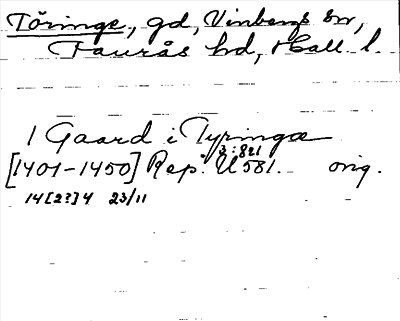 Töringe, gd, Vinbergs sn,
Faurås hd, Hall. l.
1 Gaard i Tyringæ
3:821
[1401-1450] Rep. U 581. orig.
14[2?]4 23/11